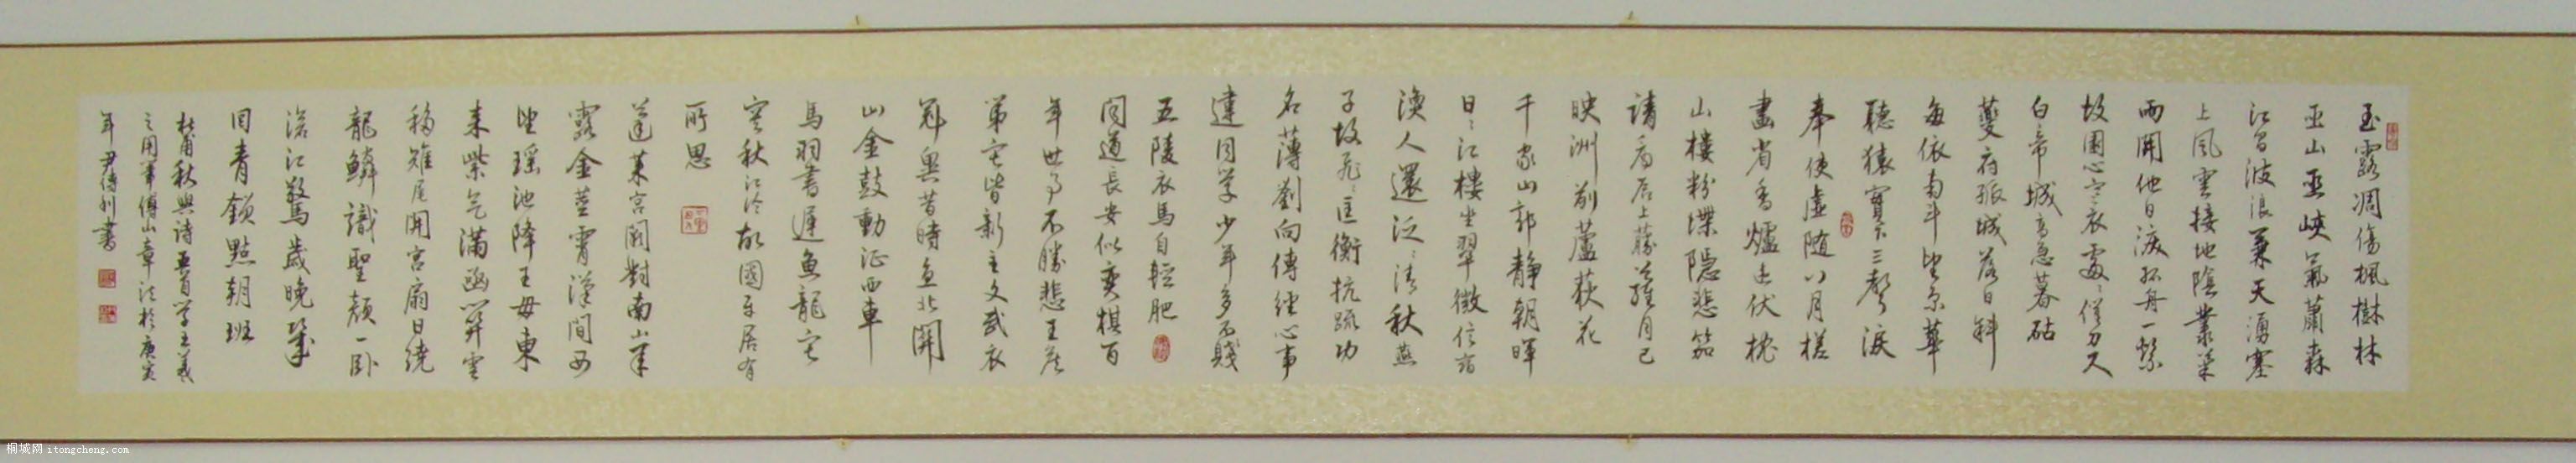 玉露凋傷楓樹林
巫山巫峽氣蕭森
江間波浪兼天湧塞
上風雲接地陰叢菊
兩開他日淚孤舟一繫
故園心寒衣處〻催刀尺
白帝城高急暮砧
夔府孤城落日斜
每依南斗望京華
聽猿實下三聲淚
奉使虛随八月槎
畫省香爐違伏枕
山樓粉堞隱悲笳
請看石上藤蘿月已
映洲前蘆荻花
千家山郭靜朝暉
日〻江樓坐翠微信宿
漁人還泛〻清秋燕
子故飛〻匡衡抗疏功
名薄劉向傳經心事
違同學少年多不賤
五陵衣馬自輕肥
聞道長安似奕棋百
年世事不勝悲王侯
第宅皆新主文武衣
冠異昔時直北關
山金鼓動征西車
馬羽書遲魚龍寂
寞秋江冷故國平居有
所思
蓬萊宮闕對南山承
露金莖霄漢間西
望瑶池降王母東
来紫氣滿函關雲
移雉尾開宮扇日繞
龍鱗識聖顏一卧
滄江驚歲晚幾
回青鎖點朝班
杜甫秋興詩五首學王羲
之用筆傅山章法於庚寅
年尹傳川書
桐城网 itongcheng.com